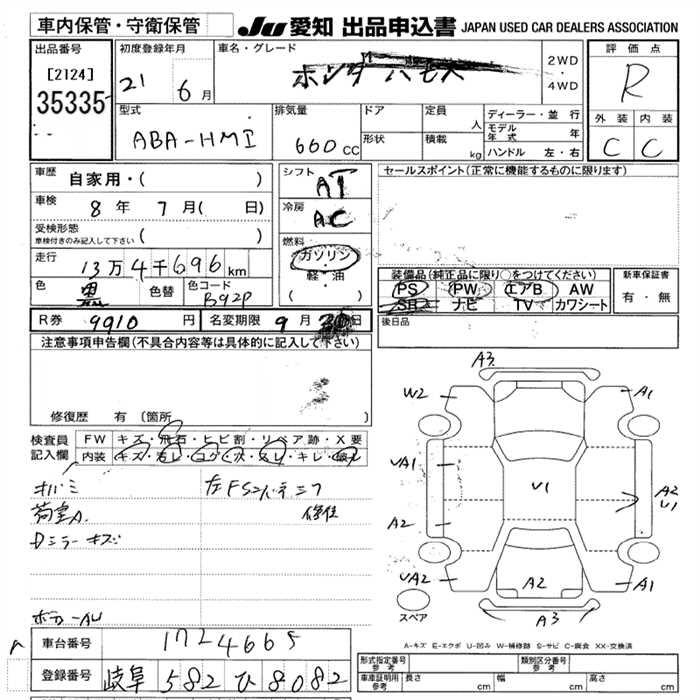 車内保管・守衛保管 JU 愛知 出品申込書 JAPAN USED CAR DEALERS ASSOCIATION
出品番号 初度登録年月 車名・グレード 評価点
[2124] 21 6月 ホンダ 2WD・4WD R
35335
型式 排気量 ドア 定員 人 ディーラー・並行 外装 内装
ABA-HM1 660cc 形状 積載 kg モデル年式 年 C C
ハンドル 左・右
車歴 自家用・( ) シフト AT セールスポイント(正常に機能するものに限ります)
車検 8年 7月( 日) 冷房 AC
受検形態 車検付きのみ記入して下さい ( ) 燃料
走行 13万4千696km ガソリン・軽・油 ( )
装備品(純正品に限り○をつけてください) 新車保証書
色 黒 色替 色コード B92P PS PW エアB AW 有・無
SR ナビ TV カワシート
R券 9910円 名変期限 9月 日 後日品
注意事項申告欄(不具合内容等は具体的に記入して下さい)
修復歴 有 (箇所
検査員記入欄 FW キズ・飛石・ヒビ割・リペア跡・X要
内装 キズ・汚レ・コゲ・穴・スレ・キレ・破レ
荷室A
Dミラーキズ
A3
W2 A1
UA1 U1 A2 U1
A2
UA2 A2 A1
スペア A3
A-キズ E-エクボ U-凹み W-補修跡 S-サビ C-腐食 XX-交換済
車台番号 1724665
登録番号 岐阜 582 ひ 8082
形式指定番号 参考 類別区分番号 参考
車庫証明用 参考 長さ cm 幅 cm 高さ cm